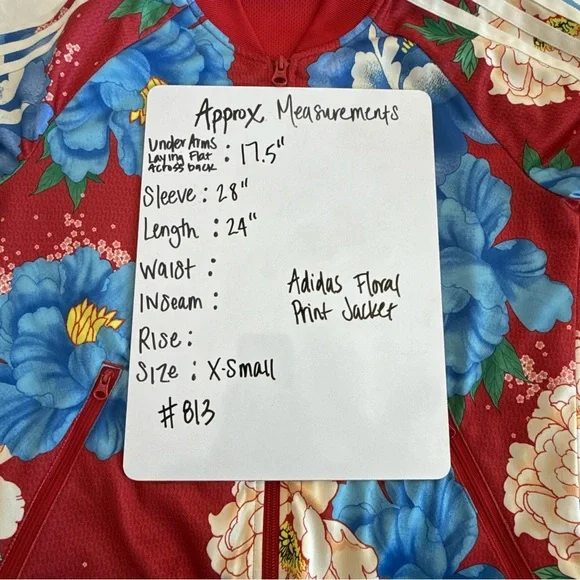 Approx Measurements
Under Arms
Laying Flat
Across back : 17.5"
Sleeve : 28"
Length : 24"
Waist :
Inseam :
Rise :
Size : X-Small
#813
Adidas Floral
Print Jacket